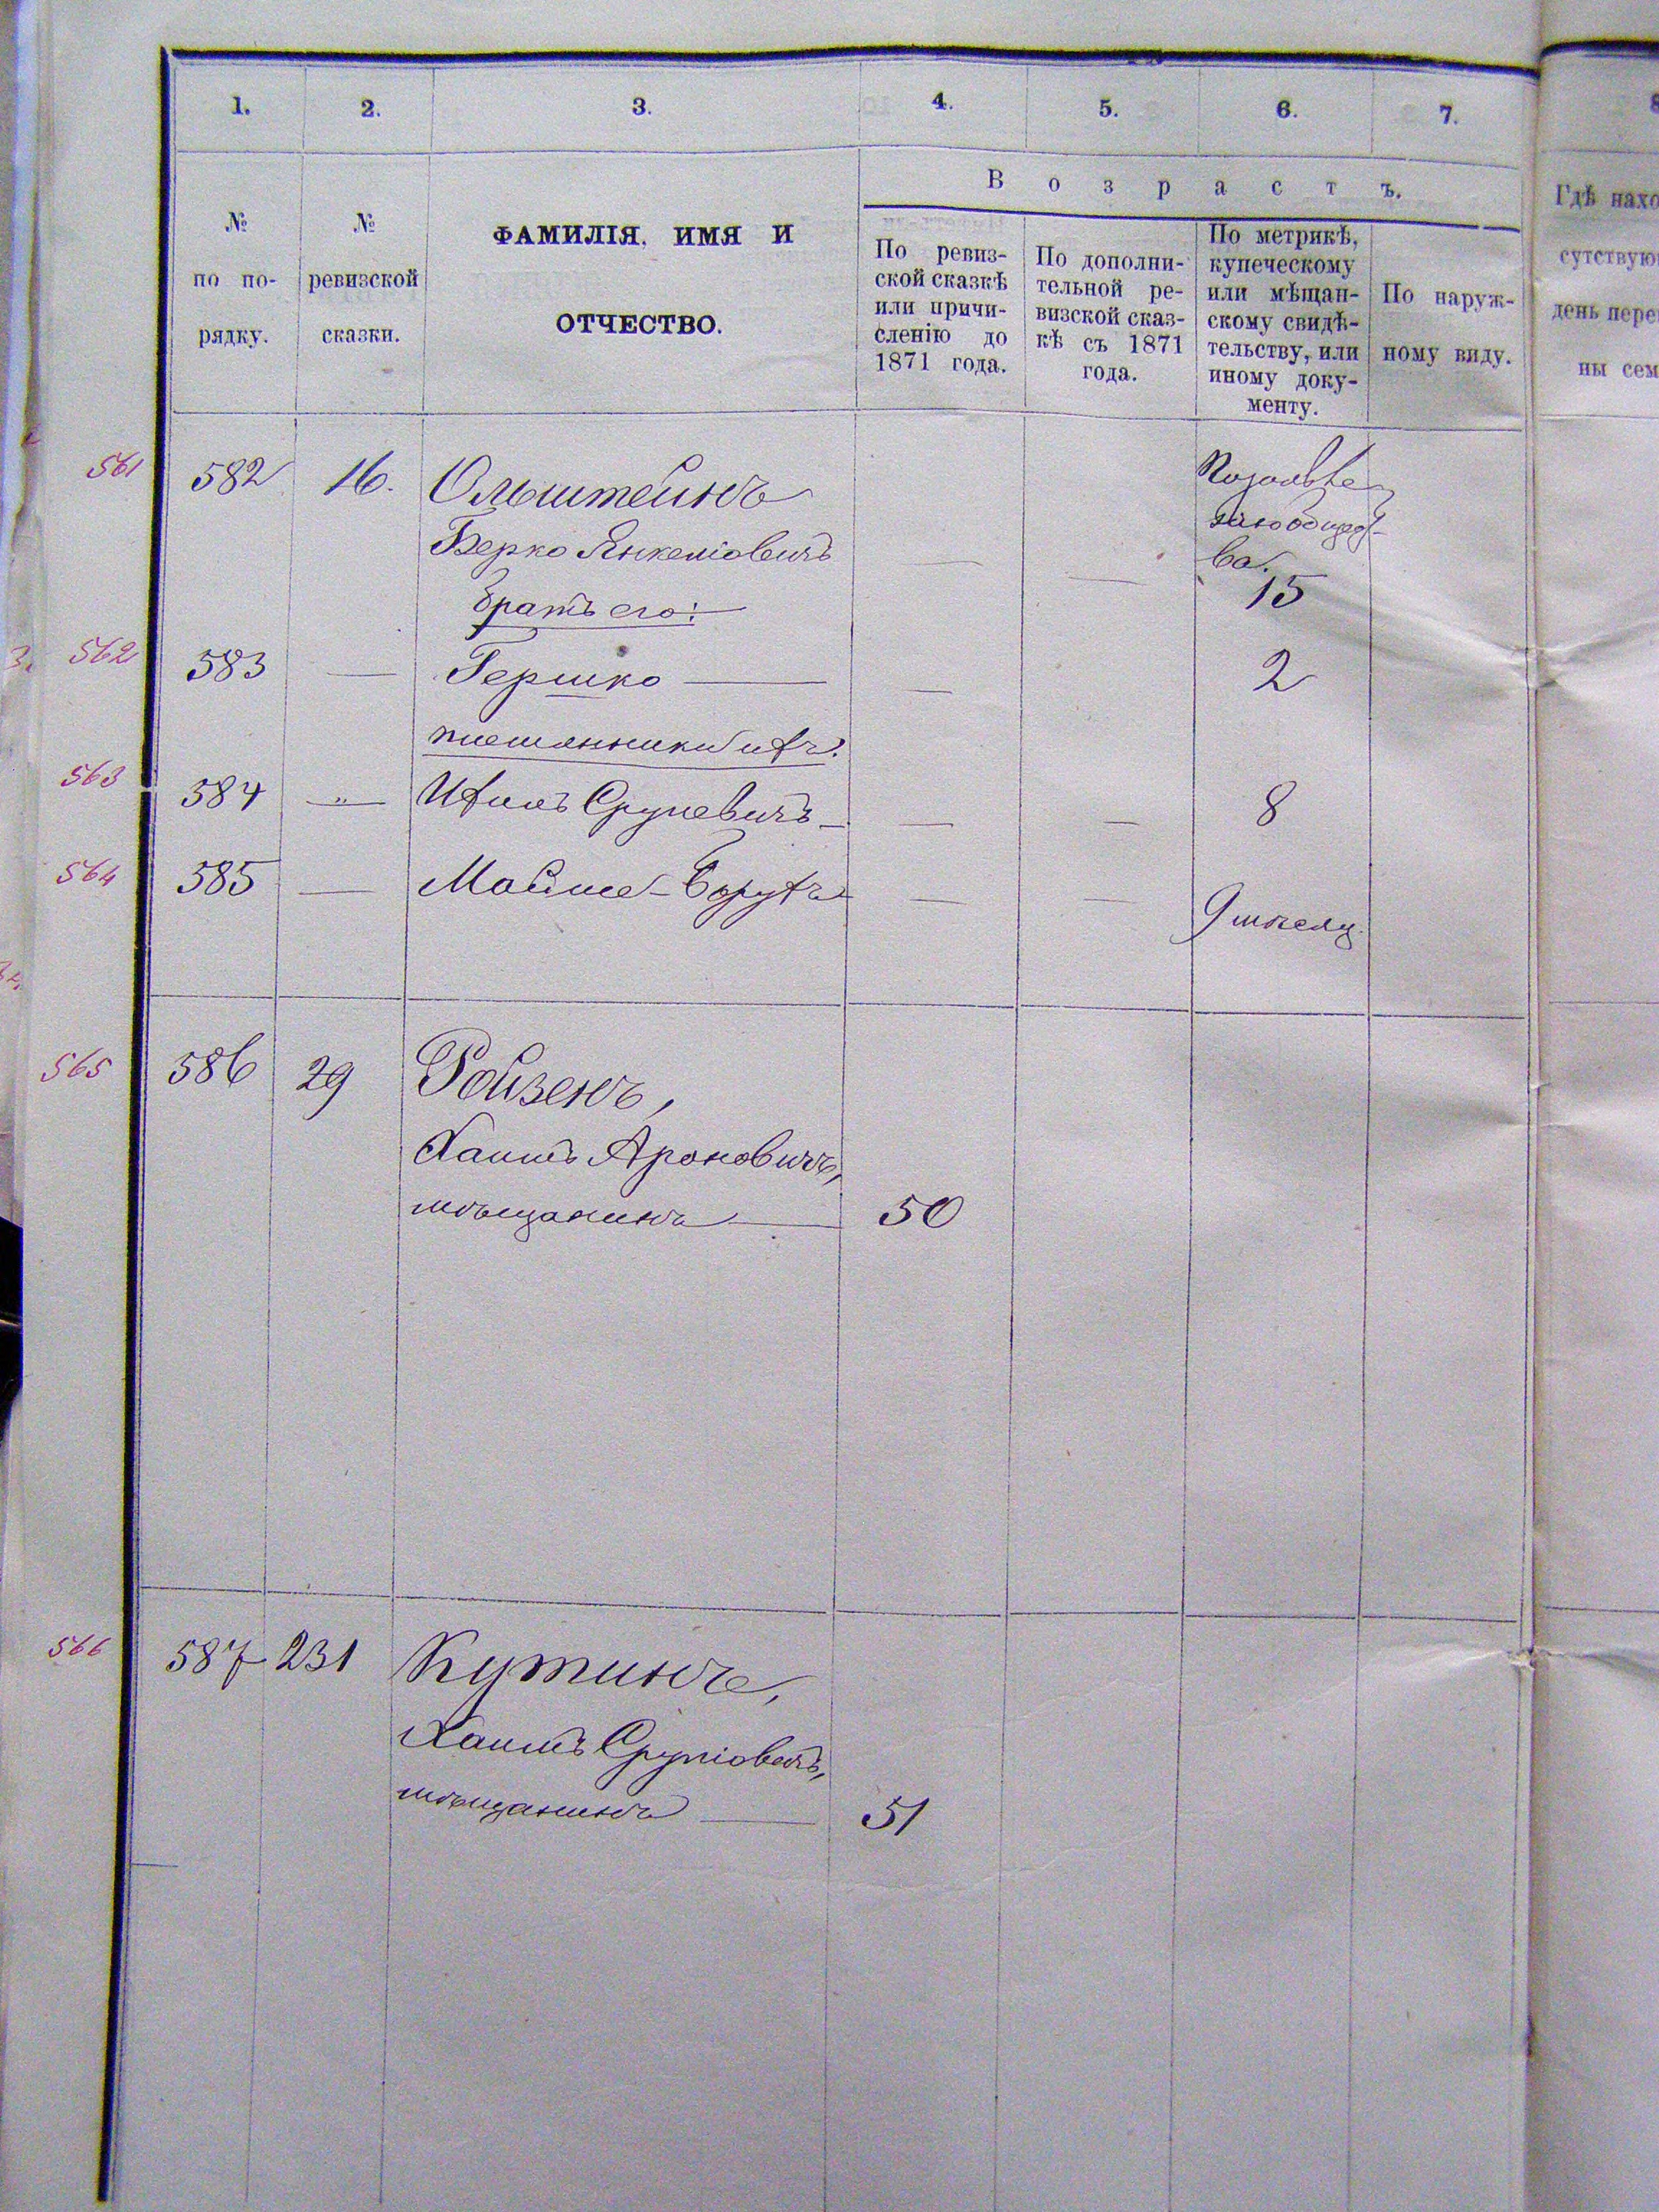 1.
2.
3.
4.
5.
6.
7.
8
№
по по-
рядку.
№
ревизской
сказки.
ФАМИЛІЯ, ИМЯ И
ОТЧЕСТВО.
Возрастъ.
По ревиз-
ской сказкѣ
или причи-
сленію до
1871 года.
По дополни-
тельной ре-
визской сказ-
кѣ съ 1871
года.
По метрикѣ,
купеческому
или мѣщан-
скому свидѣ-
тельству, или
иному доку-
менту.
По наруж-
ному виду.
Гдѣ нахо
сутствую
день пере
ны сем
561 582 16. Ольштейнъ
Берко Янкеліовичъ
15
братъ его:
562 583 — Гершко — — 2
племянники ихъ:
563 584 — " — Ихилъ Срулевичъ — — — 8
564 585 — Мойше-Борухъ — —
565 586 29 Ройзенъ,
Хаимъ Ароновичъ,
мѣщанинъ — 50
566 587 231 Кутинъ,
Хаимъ Сруліовичъ,
мѣщанинъ — 51